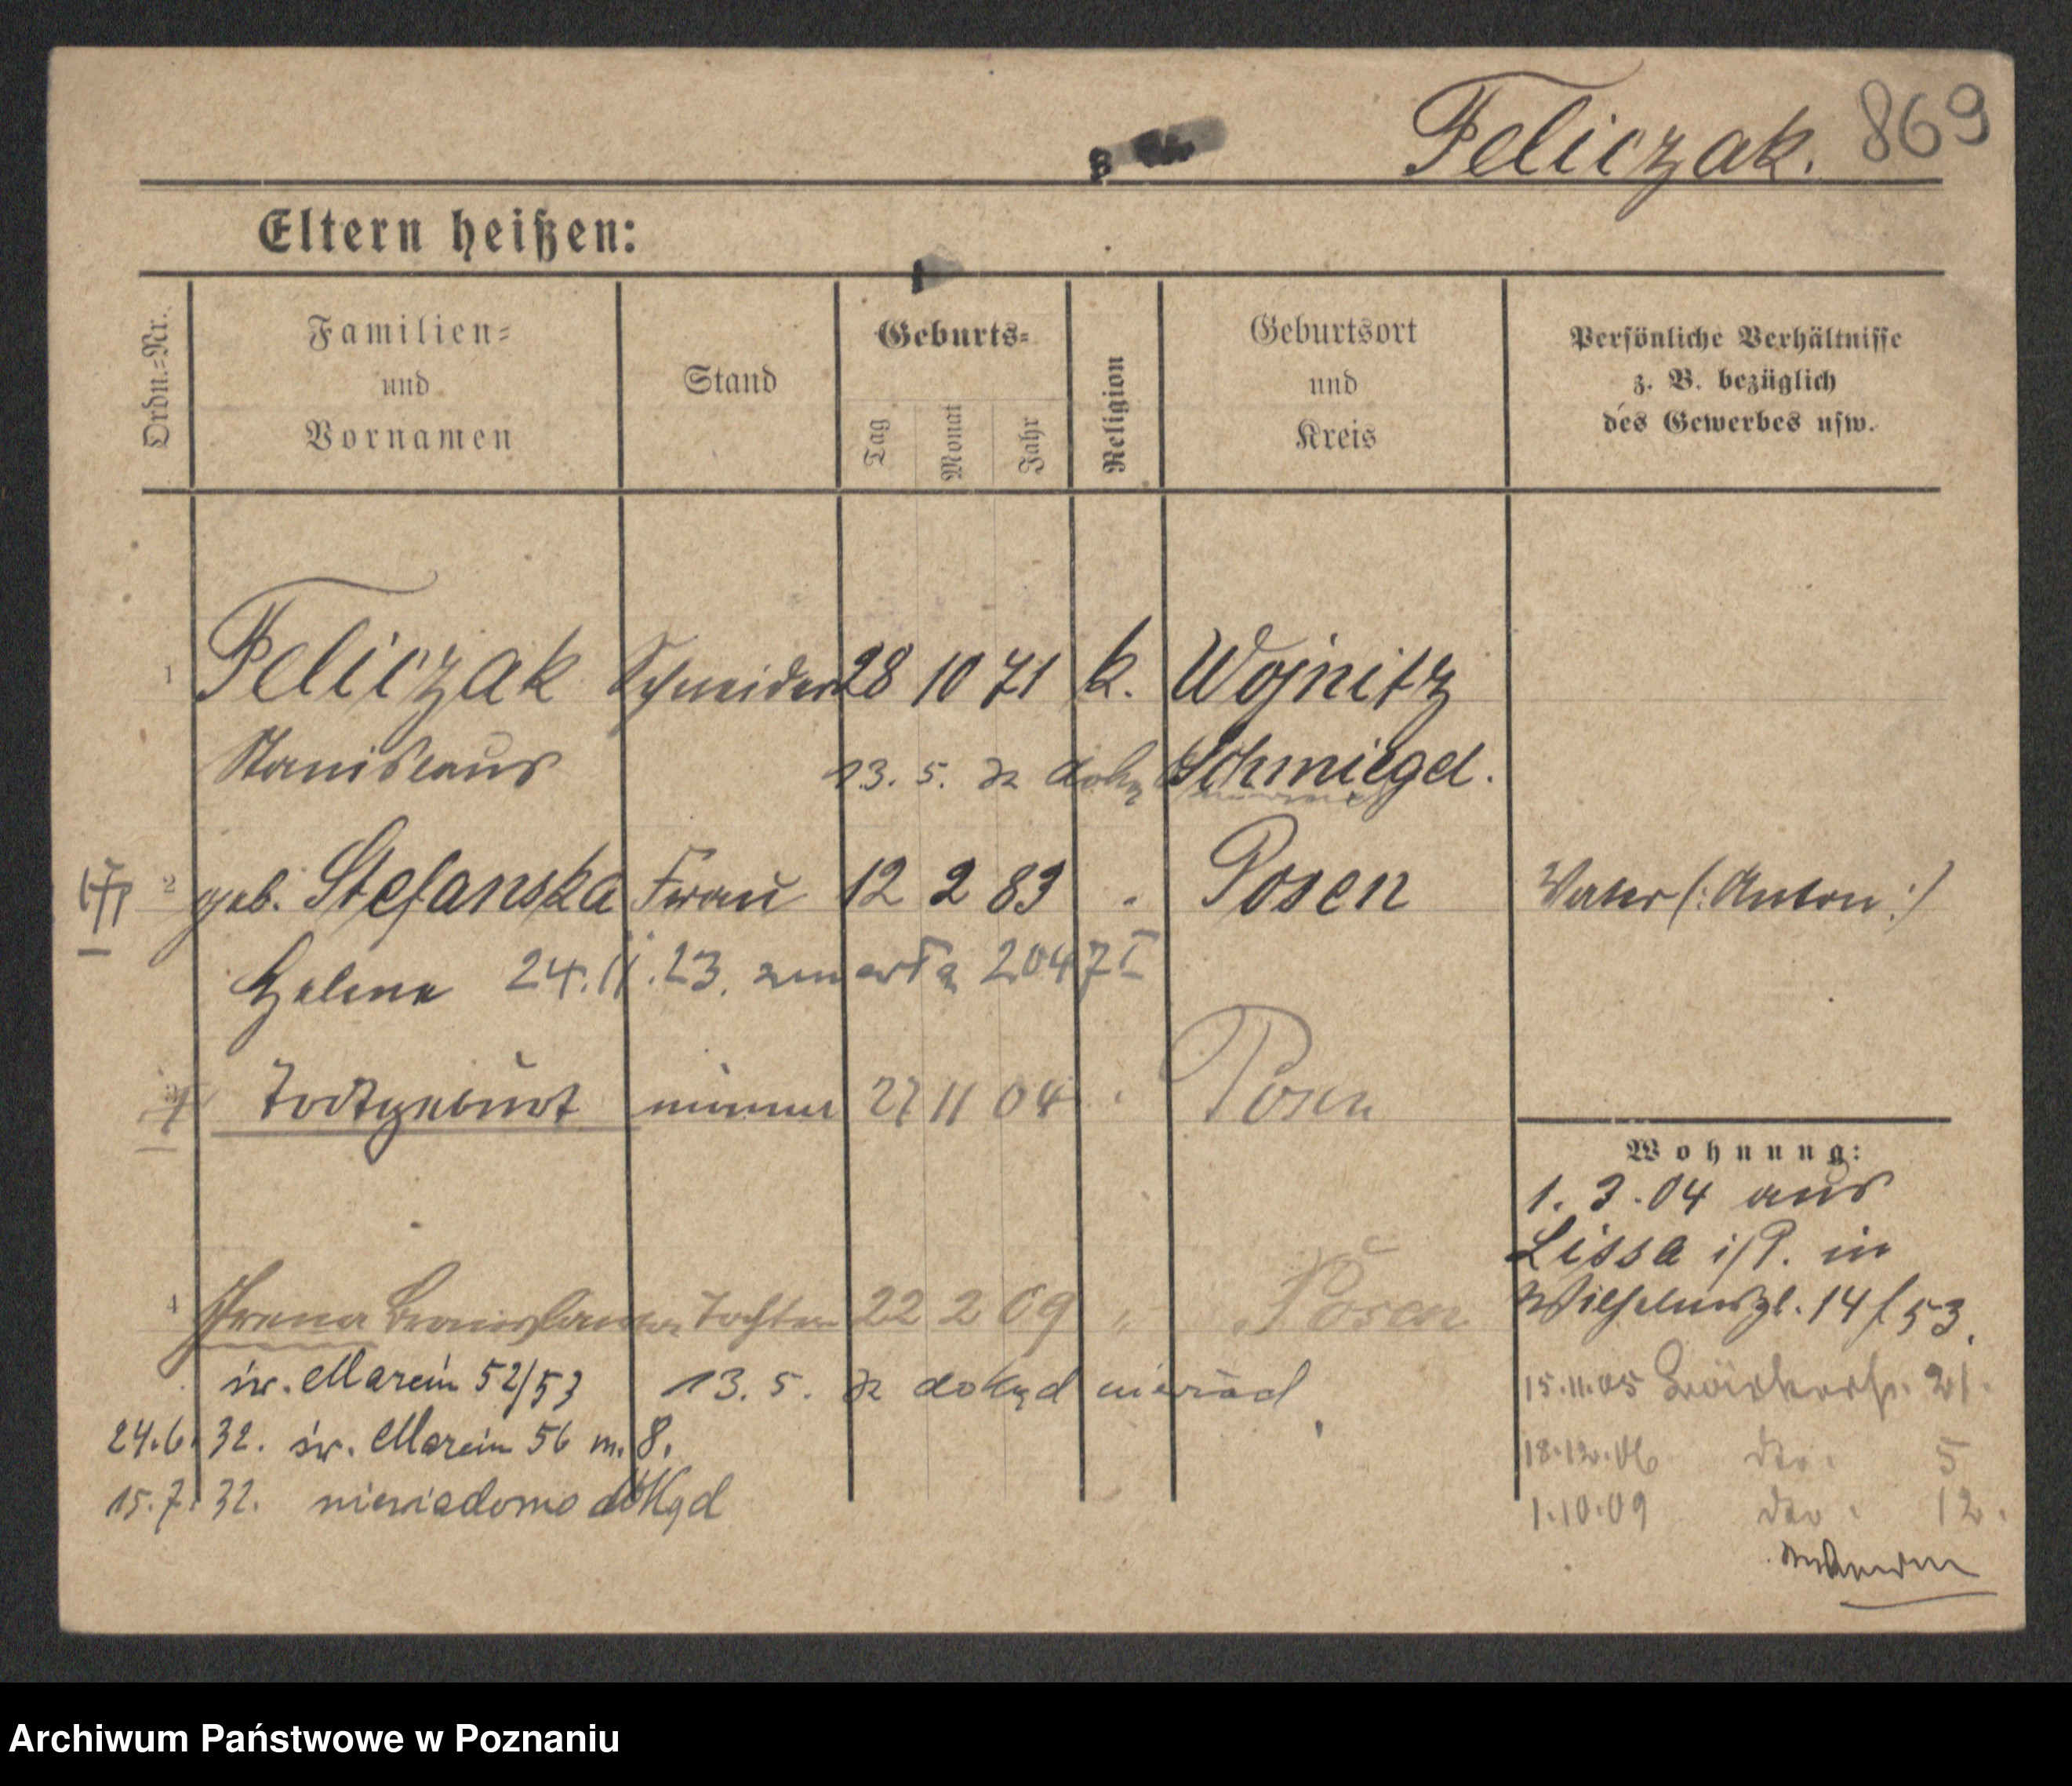 Feliczak. 869
Eltern heißen:
Ordn.=Nr.
Familien=
und
Vornamen
Stand
Geburts=
Tag
Monat
Jahr
Religion
Geburtsort
und
Kreis
Persönliche Verhältnisse
z. B. bezüglich
des Gewerbes usw.
1 Feliczak Schneider 28 10 71 k. Wojnitz
Stanislaus 13. 5. Schmiegel.
2 geb. Stefanska Frau 12 2 83 Posen Vater (: Anton :)
Helena 24.II.23. zmarła 2047 I
Todtgeburt männer 27 11 04 Posen
Wohnung:
1. 3. 04 aus
Lissa i/P. in
Wilhelmspl. 14/53.
4 Irena Bronislawa Tochter 22 2 09 " Posen
św. Marcin 52/53 13. 5. 32 dokąd
15.11.05 Bäckerstr. 21.
24.6.32. św. Marcin 56 m. 8.
18.12.06 do. 5
15.7.32. niewiadomo dokąd
1.10.09 do. 12.
Archiwum Państwowe w Poznaniu